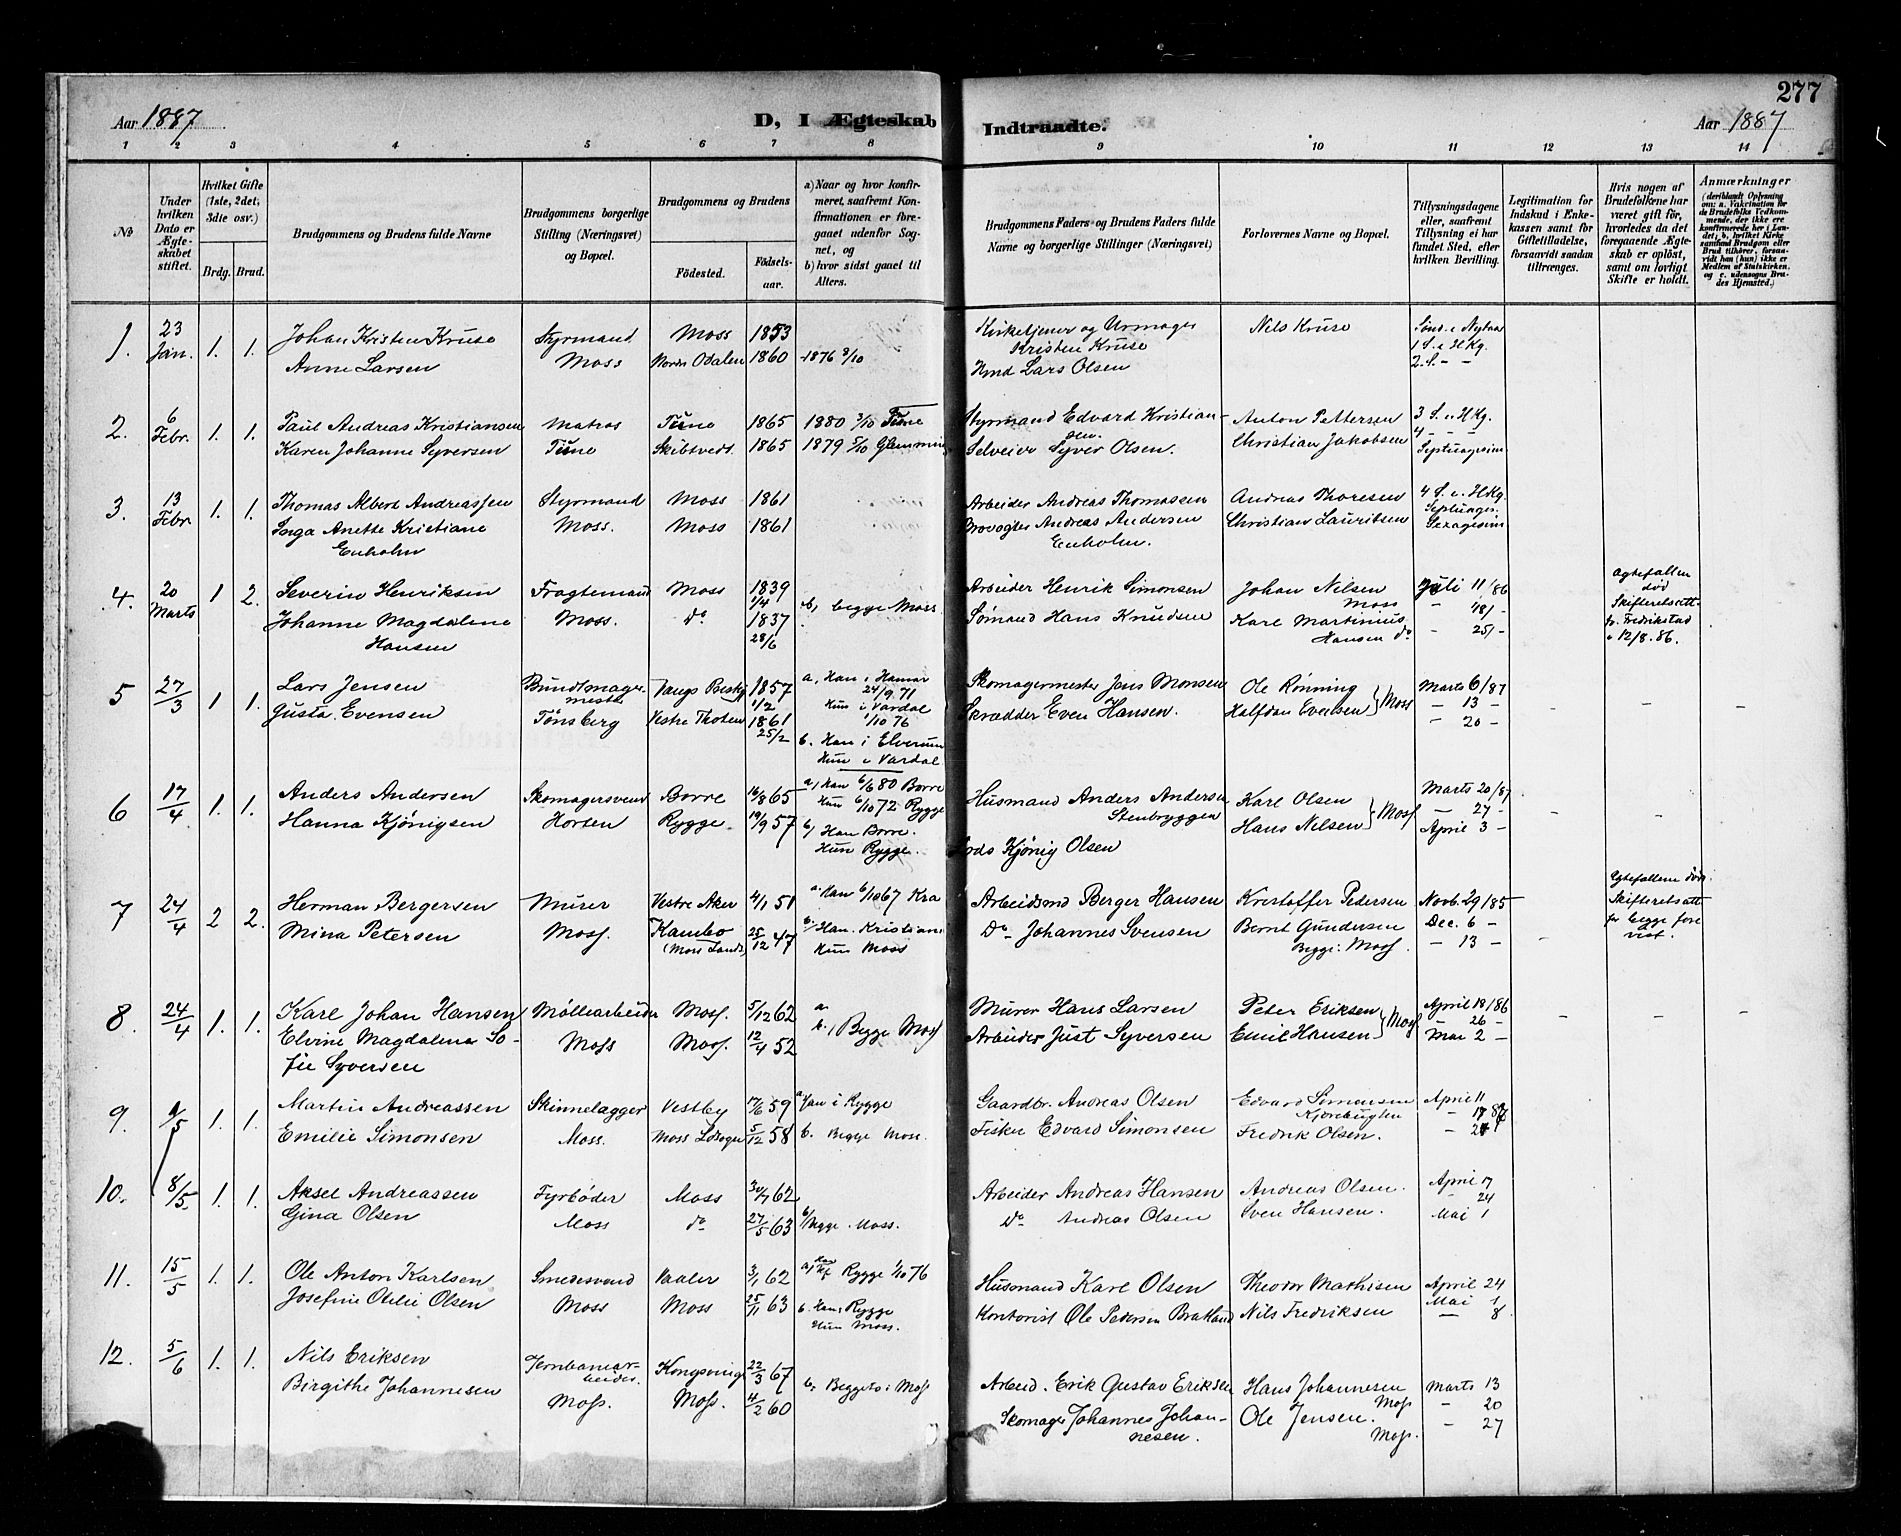 277
Aar 1887.
D, I Ægteskab
Indtraadte.
Aar 1887
1 2 3 4 5 6 7 8 9 10 11 12 13 14
No
Under hvilken Dato er Ægteskabet stiftet.
Hvilket Gifte (1ste, 2det, 3die osv.)
Brdg. Brud.
Brudgommens og Brudens fulde Navne
Brudgommens borgerlige Stilling (Næringsvei) og Bopæl.
Brudgommens og Brudens
Födested.
Födsels-aar.
a) Naar og hvor konfirmeret, saafremt Konfirmationen er foregaaet udenfor Sognet, og
b) hvor sidst gaaet til Alters.
Brudgommens Faders og Brudens Faders fulde Navne og borgerlige Stillinger (Næringsvei)
Forlovernes Navne og Bopæl.
Tillysningsdagene eller, saafremt Tillysning ei har fundet Sted, efter hvilken Bevilling.
Legitimation for Indskud i Enkekassen samt for Giftetilladelse, forsaavidt saadan tiltrænges.
Hvis nogen af Brudefolkene har været gift för, hvorledes da det foregaaende Ægteskab er oplöst, samt om lovligt Skifte er holdt.
Anmærkninger
1. 23 Jan. 1. 1. Johan Kristen Kruse Styrmand Moss 1853
Anne Larsen Moss Nordre Odalen 1860 1876 8/10
Kirketjener og Urmager Kristen Kruse Nils Kruse Sönd. e. Nytaar
1 S. e. H.Kg.
Hmd Lars Olsen 2. S. - -
2. 6 Febr. 1. 1. Paul Andreas Kristiansen Matros Tune 1865 1880 3/10 Tune
Karen Johanne Syversen Tune Skibtvedt 1865 1879 5/10 Glemminge
Styrmand Edvard Kristiansen. Anton Pettersen 3 S. e. H.Kg.
Selveier Syver Olsen. Christian Jakobsen 4 - - -
Septuagesim
3. 13 Febr. 1. 1. Thomas Albert Andreassen Styrmand Moss 1861
Inga Anette Kristiane Enholm Moss. Moss 1861
Arbeider Andreas Thomassen Andreas Thoresen 4 S. e. H.Kg.
Brovogter Andreas Andersen Enholm. Christian Lauritsen Septuages.
Sexagesim
4. 20 Marts 1 2. Severin Henriksen Fragtemand Moss 1839 1/4 b, begge Moss.
Johanne Magdalene Hansen Moss. do 1837 28/6
Arbeider Henrik Simonsen Johan Nilsen Moss Juli 11/86
Sømand Hans Knudsen Karl Martinius Hansen do - 18/-
- 25/-
Ægtefællen död Skifteretsatt. fr. Fredrikstad 12/8.86.
5 27/3 1 1. Lars Jensen Bundtmagermester Vangs Prestgj 1857 1/2 a, Han i Hamar 24/9 71
Gusta Evensen Tönsberg Vestre Thoten 1861 25/2 Hun i Vardal 1/10 76
b. Han i Elverum
Hun i Vardal.
Skomagermester Jens Monsen Ole Rønning Marts 6/87
Skrædder Even Hansen. Halfdan Evensen } Moss - 13 -
- 20 -
6 17/4 1. 1. Anders Andersen Skomagersvend Borre 16/8 65 a, Han 6/6 80 Borre
Hanna Kjönigsen Horten Rygge 19/9 57 Hun 6/10 72 Rygge
b, Han Borre.
Hun Rygge.
Husmand Anders Andersen Stenbryggen Karl Olsen Marts 20/87
Hans Nilsen } Moss - 27 -
Kjönig Olsen April 3 -
7 24/4 2 2. Herman Bergersen Murer Vestre Aker 4/1 51 a. Han 6/10 67 Kra
Mina Petersen Moss. Kambo (Moss Lands) 25/12 47 b. Han. Kristian
Hun Moss
Arbeidsmd Berger Hansen Kristoffer Pedersen Novb. 29/85
Do Johannes Svensen Bernt Gundersen Dec. 6 -
Begge: Moss. - 13 -
Egtefællene døde. Skifteretsatt fr begge fore vist.
8. 24/4 1. 1. Karl Johan Hansen Møllearbeider Moss. 5/12 62 a.
Elvine Magdalena Sofie Syversen Moss Moss. 12/4 52 b., Begge Moss
Murer Hans Larsen Peter Eriksen April 18/86
Arbeider Just Syversen Emil Hansen } Moss - 26 -
Mai 2 -
9. 1/5 1. 1. Martin Andreassen Skindelægger Vestby 17/6 59 a. Han i Rygge
Emilie Simonsen Moss. Moss Ldsogn 5/12 58 b. Begge Moss.
Gaardbr. Andreas Olsen Edvard Simonsen April 11
Fisker Edvard Simonsen Fredrik Olsen. - 17 87
- 24
10. 8/5. 1. 1. Aksel Andreassen Fyrböder Moss 30/7 62
Gina Olsen Moss do 27/5 63 b/ Begge Moss.
Arbeider Andreas Hansen Andreas Olsen. April 17
Do Andreas Olsen Sven Hansen. - 24
Mai 1
11. 15/5 1. 1. Ole Anton Karlsen Smedesvend Vaaler 3/1 62 a, Han Rygge 1/10 76
Josefine Otilie Olsen Moss Moss 25/11 63 b. Han, Rygge
Hun Moss.
Husmand Karl Olsen Theodor Mathisen April 24
Kontorist Ole Pedersen Bratland Nils Fredriksen Mai 1
- 8.
12. 5/6 1. 1. Nils Eriksen Jernbanearbeider. Kongsvinger 22/3 67
Birgithe Johannesen Moss. Moss. 4/2 60 b, Begge i Moss
Arbeid. Erik Gustav Eriksen Hans Johannesen Moss Marts 13
- 20
Skomager Johannes Johannesen. Ole Jensen. Moss. - 27